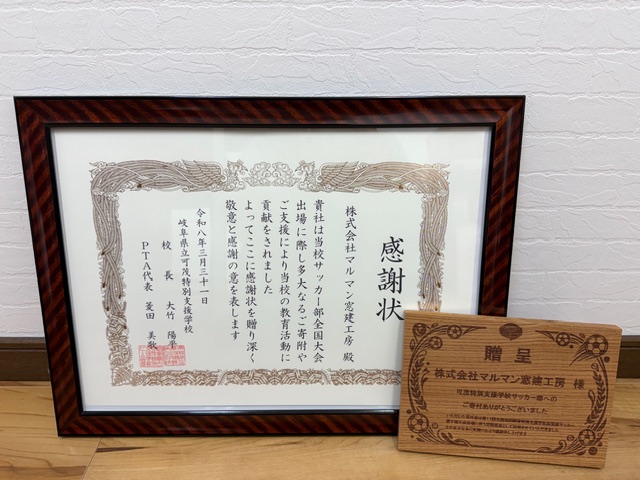 感謝状
株式会社マルマン窓建工房 殿
貴社は当校サッカー部全国大会
出場に際し多大なるご寄附や
ご支援により当校の教育活動に
貢献をされました
よってここに感謝状を贈り深く
敬意と感謝の意を表します
令和八年三月三十一日
岐阜県立可茂特別支援学校
校長 大竹 陽平
PTA代表 菱田 美敬
贈呈
株式会社マルマン窓建工房 様
可茂特別支援学校サッカー部への
ご寄付ありがとうございました